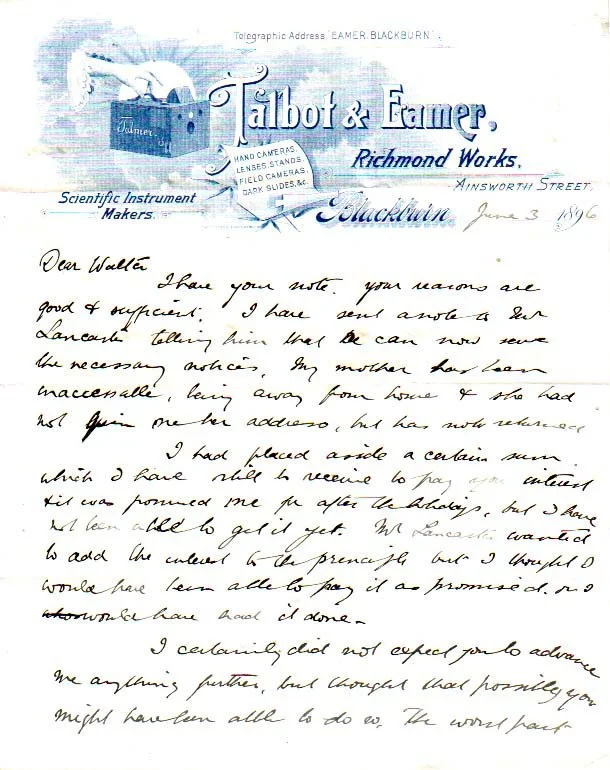 Telegraphic Address "EAMER, BLACKBURN".
Talbot & Eamer,
Talmer
HAND CAMERAS,
LENSES, STANDS,
FIELD CAMERAS,
DARK SLIDES, &c.
Richmond Works,
AINSWORTH STREET,
Scientific Instrument
Makers.
Blackburn June 3 1896
Dear Walter
I have your note. your reasons are
good & sufficient. I have sent a note to Mr
Lancaster telling him that he can now serve
the necessary notices. My mother has been
inaccessable, being away from home & she had
not given me her address, but has now returned
I had placed aside a certain sum
which I have still to receive to pay you interest
it was promised me for after the holidays, but I have
not been able to get it yet. Mr Lancaster wanted
to add the interest to the principle but I thought I
would have been able to pay it as promised. or I
would have had it done.
I certainly did not expect you to advance
me anything further, but thought that possibly you
might have been able to do so. The worst part